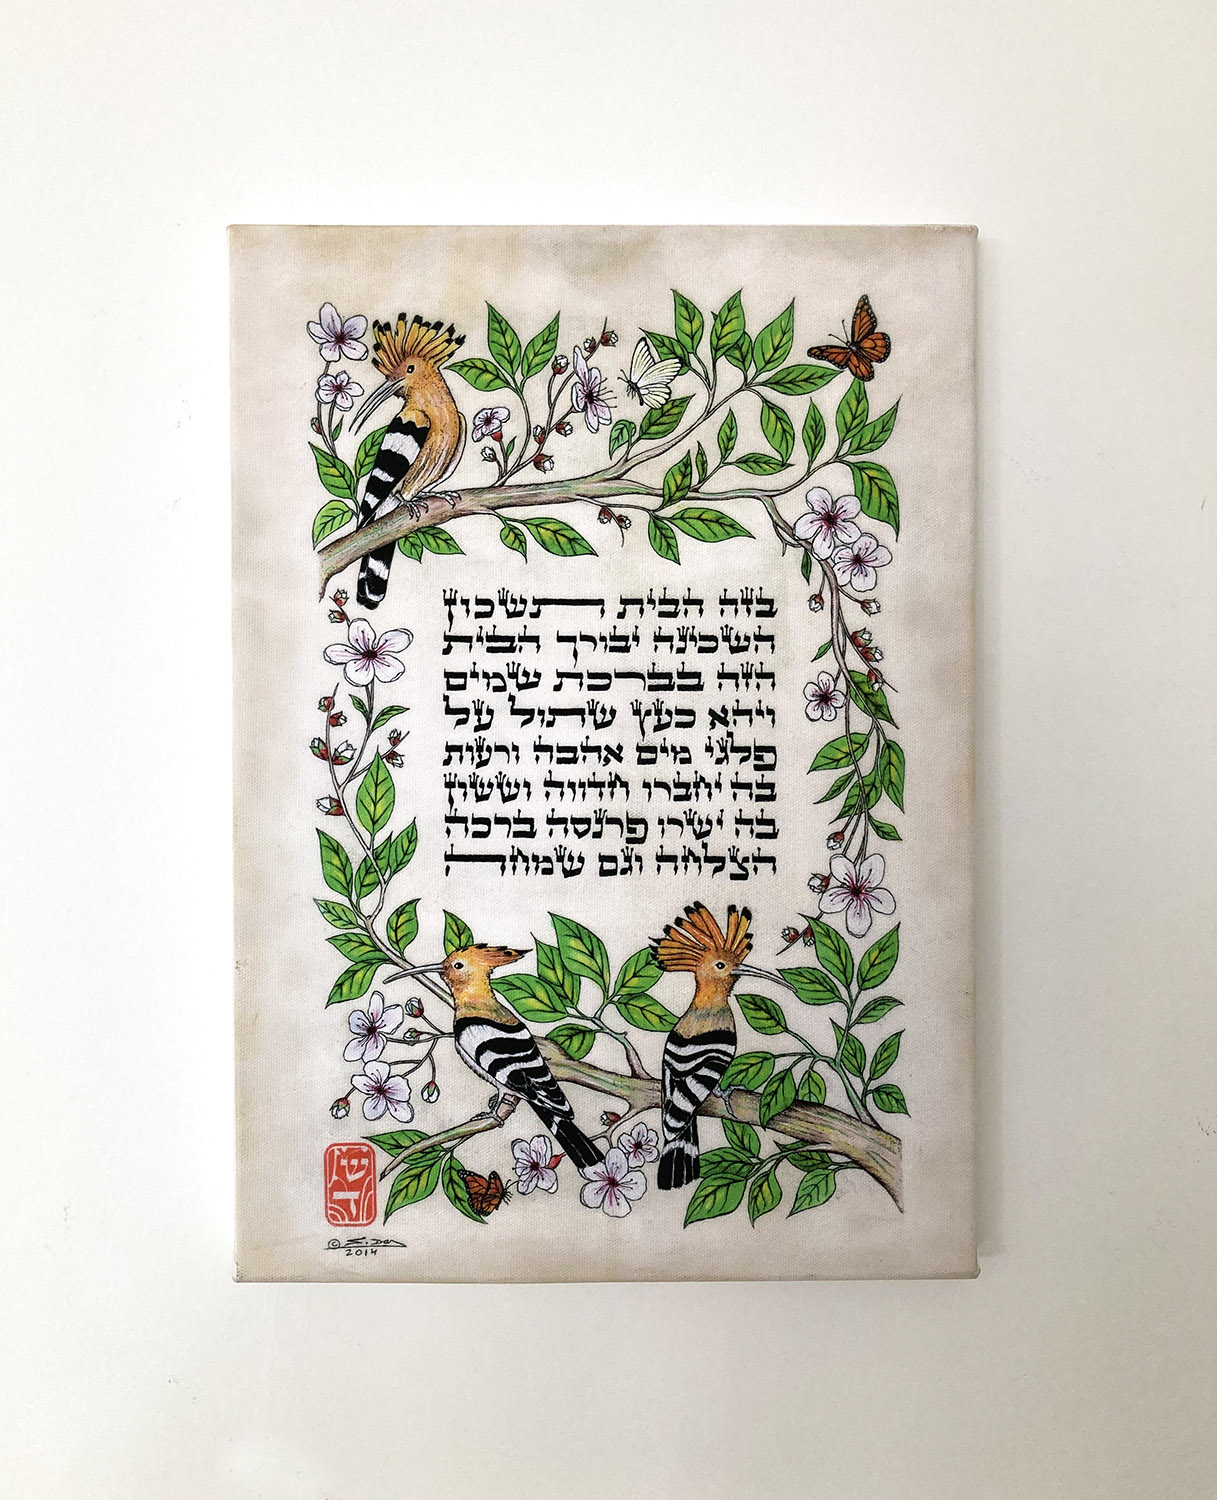 בזה הבית תשכון
השכינה יבורך הבית
הזה בברכת שמים
ויהא כעץ שתול על
פלגי מים אהבה ורעות
בה יחברו חדווה וששון
בה ישרו פרנסה ברכה
הצלחה וגם שמחה
©
2014